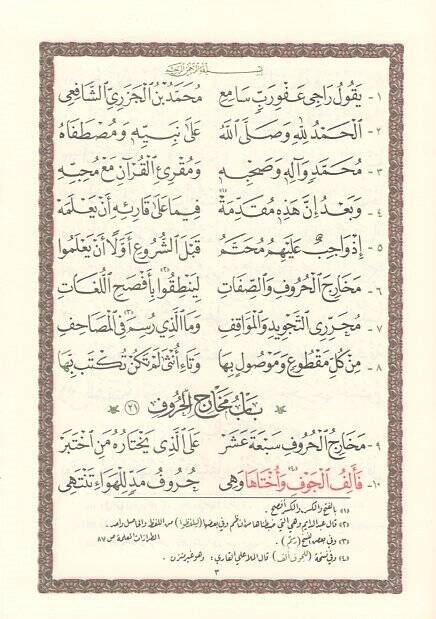 بسم الله الرحمن الرحيم
١- يَقُولُ رَاجِي عَفْوِ رَبٍّ سَامِعِ مُحَمَّدُ بْنُ الْجَزَرِيِّ الشَّافِعِي
٢- الْحَمْدُ لِلَّهِ وَصَلَّى اللَّهُ عَلَى نَبِيِّهِ وَمُصْطَفَاهُ
٣- مُحَمَّدٍ وَآلِهِ وَصَحْبِهِ وَمُقْرِئِ الْقُرْآنِ مَعْ مُحِبِّهِ
٤- وَبَعْدُ إِنَّ هَذِهِ مُقَدِّمَهْ فِيمَا عَلَى قَارِئِهِ أَنْ يَعْلَمَهْ
٥- إِذْ وَاجِبٌ عَلَيْهِمُ مُحَتَّمُ قَبْلَ الشُّرُوعِ أَوَّلًا أَنْ يَعْلَمُوا
٦- مَخَارِجَ الْحُرُوفِ وَالصِّفَاتِ لِيَنْطِقُوا بِأَفْصَحِ اللُّغَاتِ
٧- مُحَرِّرِي التَّجْوِيدِ وَالْمَوَاقِفِ وَمَا الَّذِي رُسِمَ فِي الْمَصَاحِفِ
٨- مِنْ كُلِّ مَقْطُوعٍ وَمَوْصُولٍ بِهَا وَتَاءِ أُنْثَى لَمْ تَكُنْ تُكْتَبْ بِهَا
بَابُ مَخَارِجِ الْحُرُوفِ
٩- مَخَارِجُ الْحُرُوفِ سَبْعَةَ عَشَرْ عَلَى الَّذِي يَخْتَارُهُ مَنِ اخْتَبَرْ
١٠- فَأَلِفُ الْجَوْفِ وَأُخْتَاهَا وَهِي حُرُوفُ مَدٍّ لِلْهَوَاءِ تَنْتَهِي
(١) بالفتح والكسر والكسر أفصح.
(٣) وفي بعض النسخ
(٤) وفي نسخة (للجوف ألف) قال الملا علي القاري: وهو غير متزن.
٣